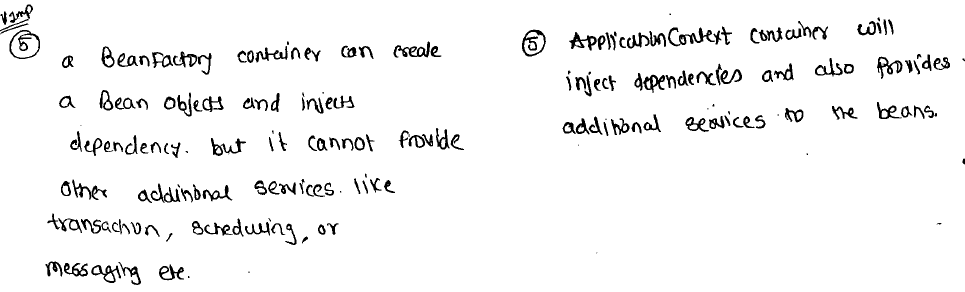 V.Imp
⑤
a BeanFactory container can create
a Bean objects and injects
dependency. but it cannot Provide
other additional services. like
transaction, scheduling, or
messaging etc.
⑤ ApplicationContext container will
inject dependencies and also Provides
additional services to the beans.